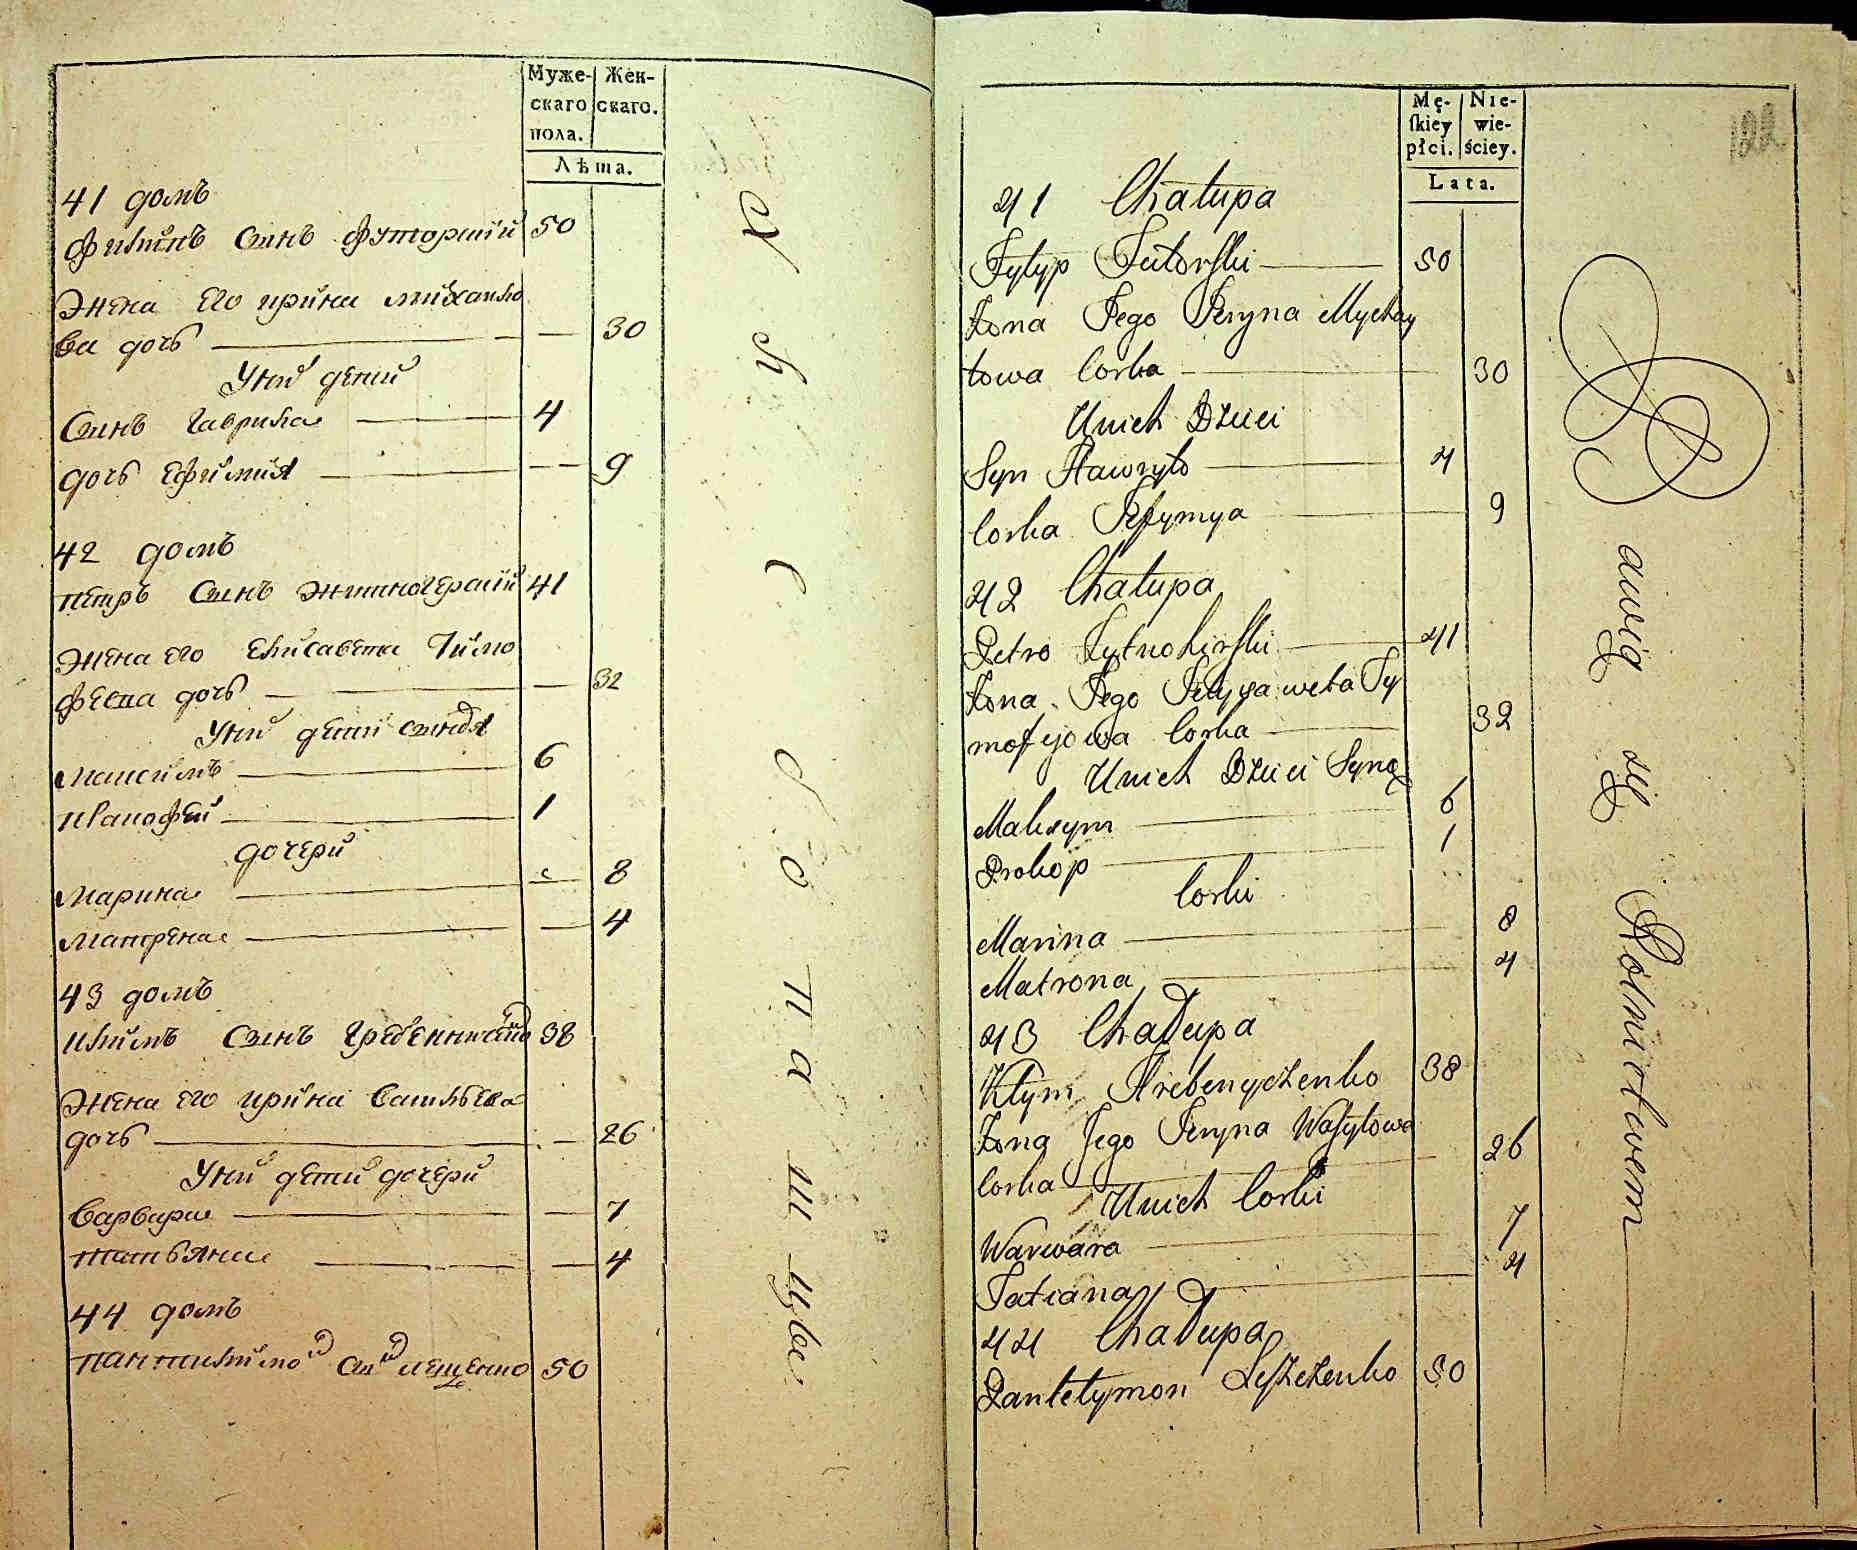 Муже-
скаго
пола.
Жен-
скаго.
Лѣта.
41 домъ
Филипъ Синъ Футорский 50
Жена Его ирина михайло
ва дочъ 30
У них дети
Синъ гаврила 4
дочъ Ефимия 9
42 домъ
петръ Синъ Житногерский 41
Жена его Елисавета Тимо
феева дочъ 32
У них дети синов
Максимъ 6
прокофей 1
дочери
марина 8
матрена 4
43 домъ
климъ Синъ гребенниченко 38
Жена его ирина васильева
дочъ 26
У них дети дочери
варвара 7
татьяна 4
44 домъ
пантилимо лещенко 50
хлебопашцы
122
Mę-
skiey
płci.
Nie-
wie-
ściey.
Lata.
41 Chałupa
Fylyp Futorski 50
Żona Jego Jeryna Mychay
łowa Corka 30
Unich Dzieci
Syn Hawryło 4
Corka Jefymya 9
42 Chałupa
Petro Żytnohirski 41
Żona Jego Jelyzaweta Ty
mofyjowa Corka 32
Unich Dzieci Syny
Maksym 6
Prokop 1
Corki
Marina 8
Matrona 4
43 Chałupa
Kłym Hrebenyczenko 38
Żona Jego Jeryna Wasyłowa
Corka 26
Unich Corki
Warwara 7
Tatiana 4
44 Chałupa
Pantełymon Leszczenko 50
Bawią się Rolnictwem